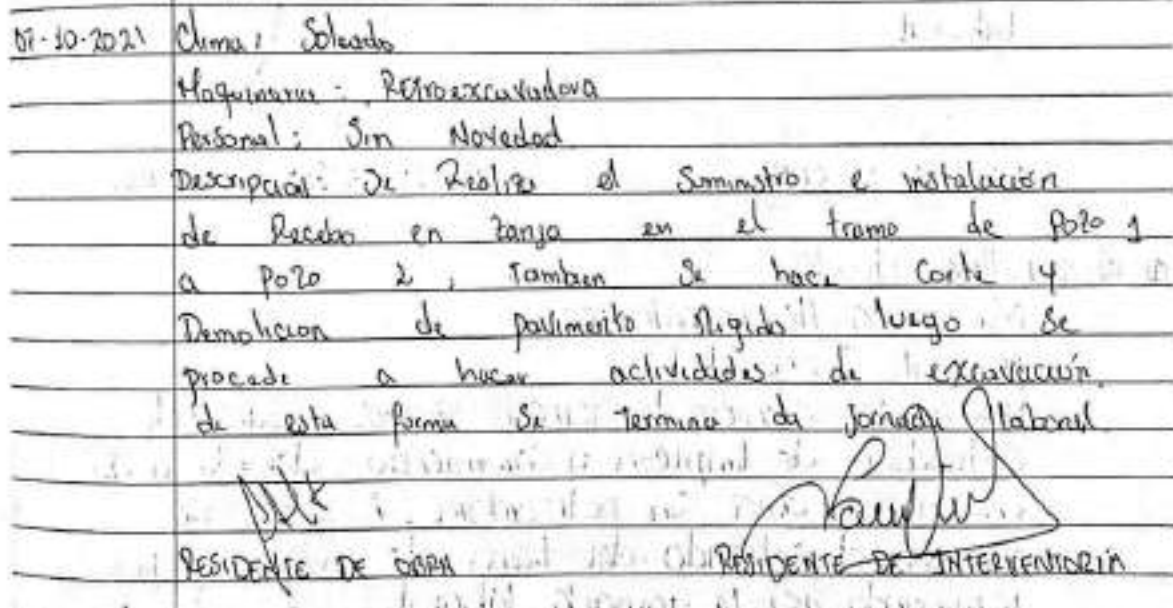 07-10-2021 Clima: Soleado
Maquinaria: Retroexcavadora
Personal: Sin Novedad
Descripción: Se Realiza el Suministro e instalación
de Recebo en zanja en el tramo de Pozo 1
a Pozo 2, Tambien se hace Corte y
Demolicion de pavimento Rigido luego se
procede a hacer actividades de excavación.
de esta forma se termina la Jornada laboral.
RESIDENTE DE OBRA RESIDENTE DE INTERVENTORIA